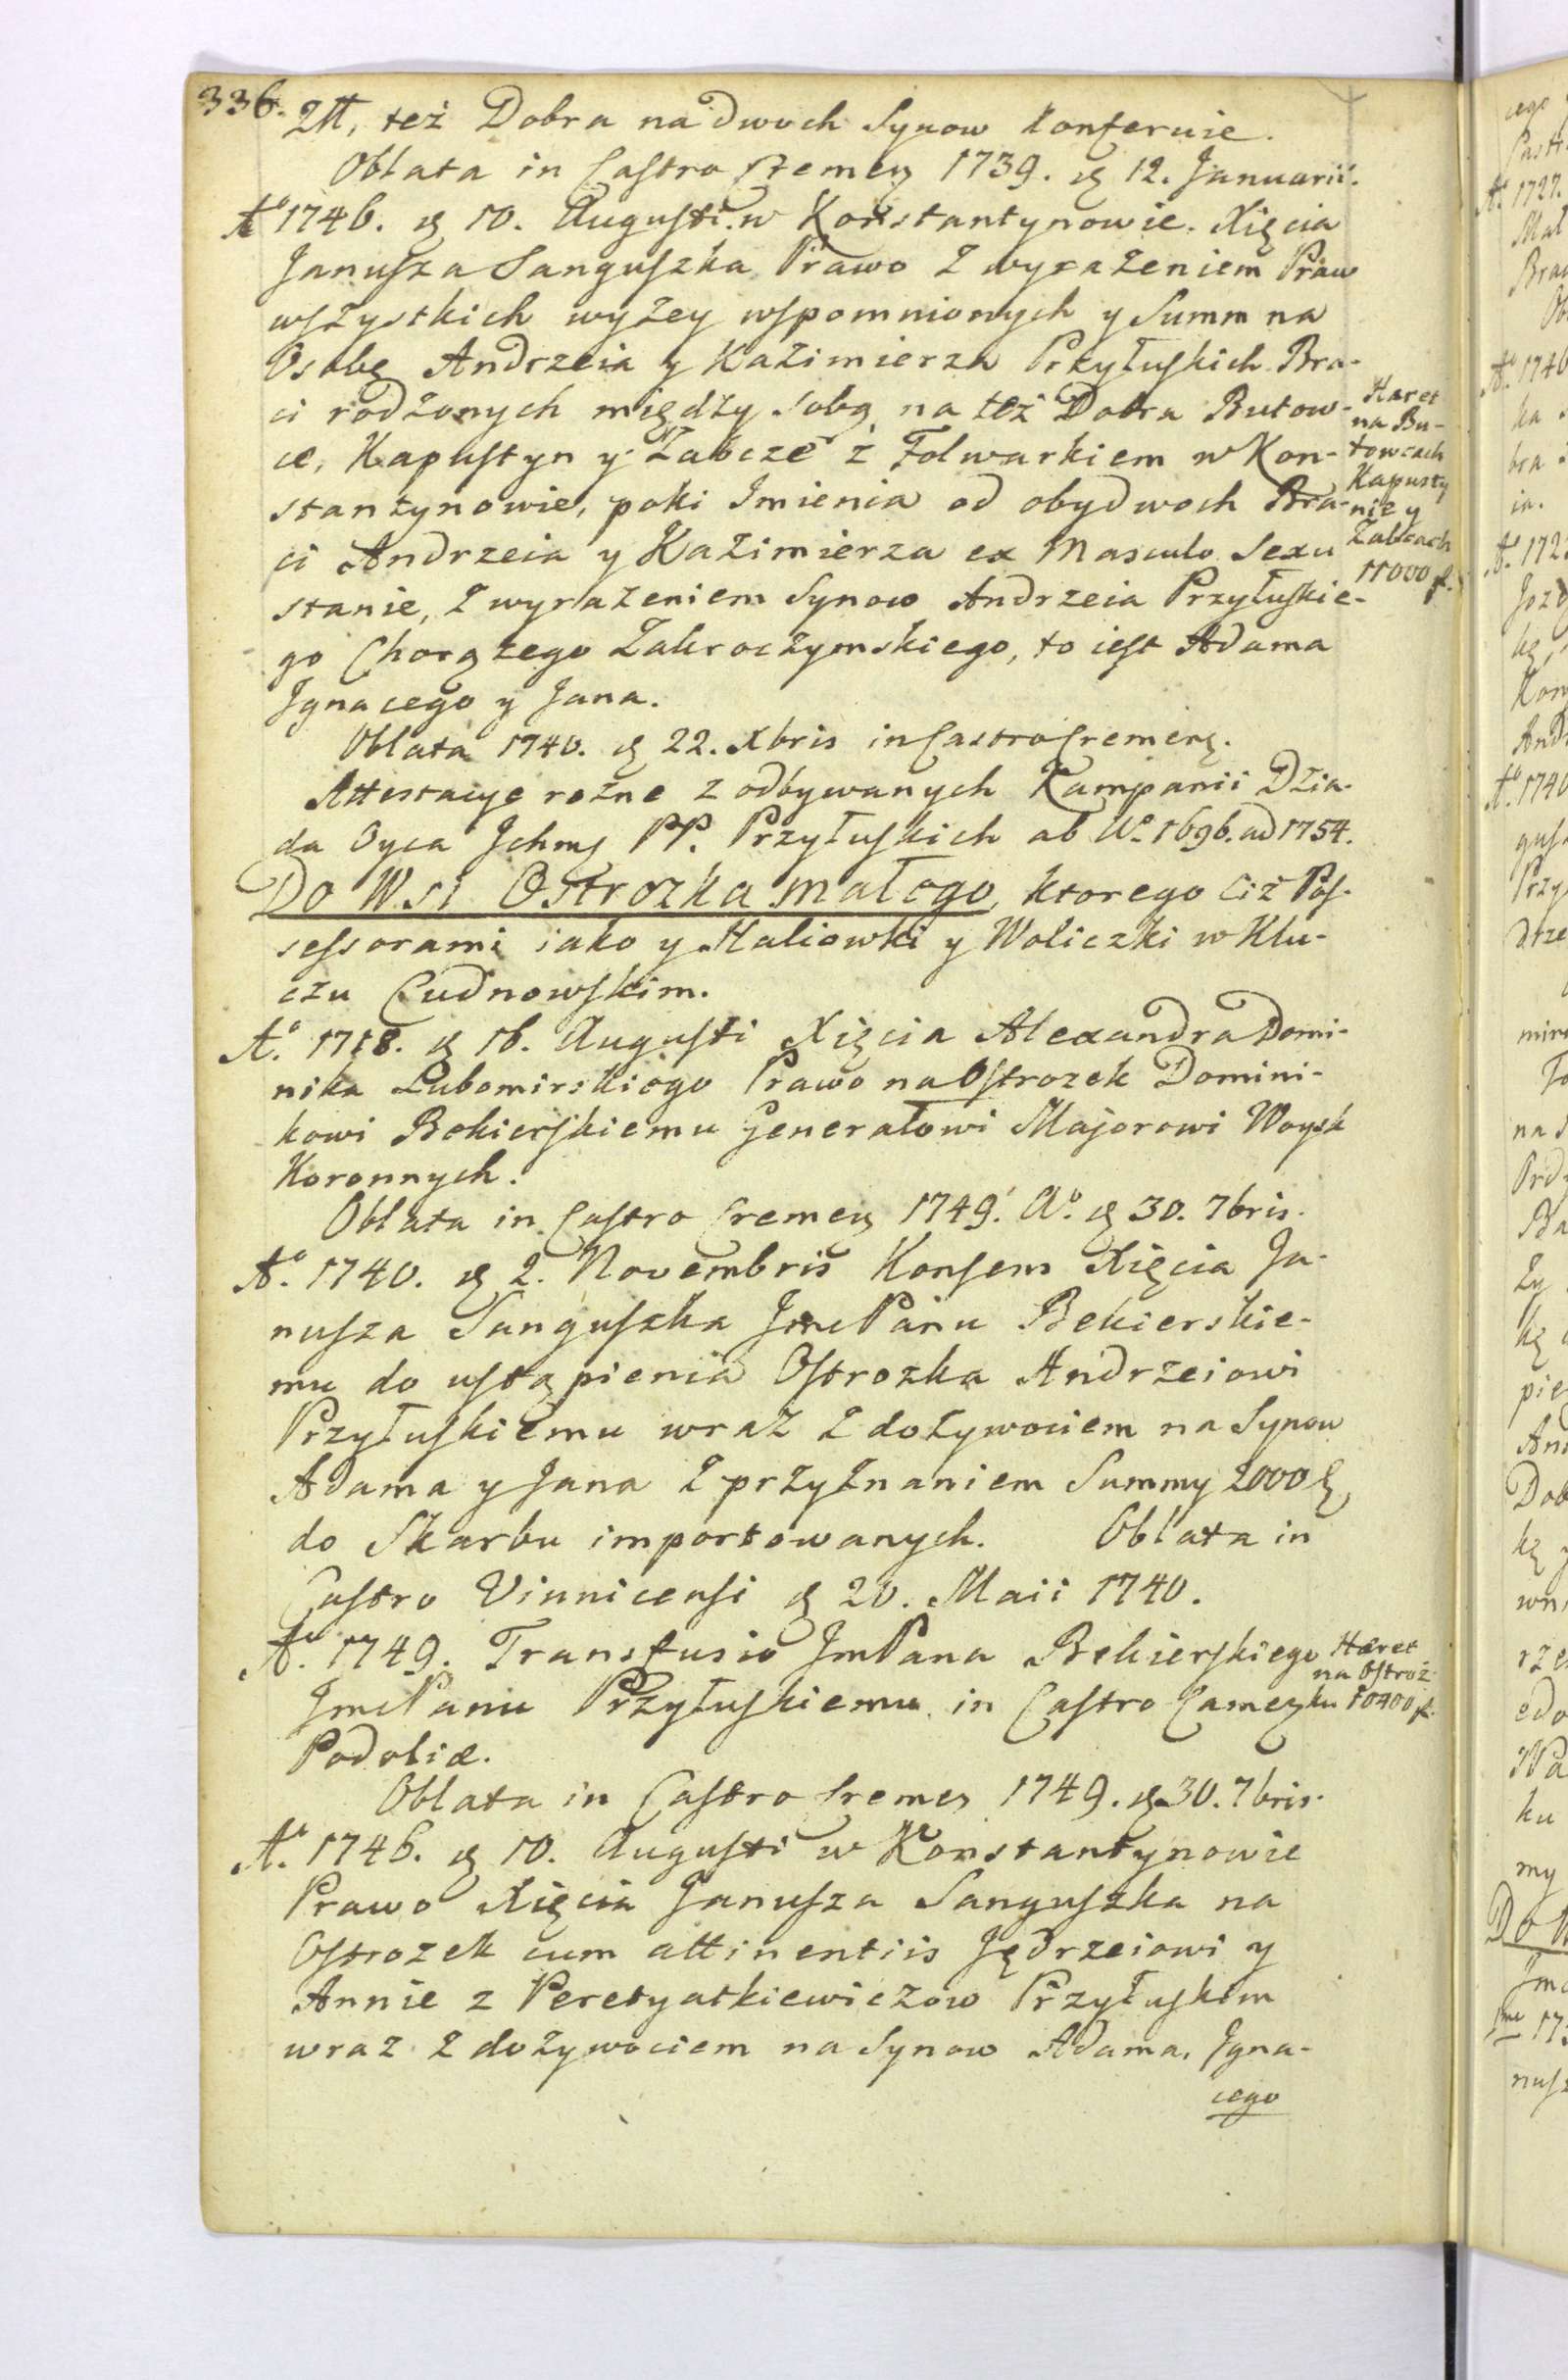 336.
2tt, też Dobra na dwoch Synow konferuie.
Oblata in Castro Cremen 1739. d 12. Januarii.
Aº 1746. d 10. Augusti. w Konstantynowie. Xięcia
Janusza Sanguszka Prawo z wyrażeniem Praw
wszystkich wyżey wspomnionych y Summ na
Osobę Andrzeia y Kazimierza Przyłuskich Bra-
ci rodzonych między sobą na też Dobra Butow-
ce, Kapustyn y Zabcze z Folwarkiem w Kon-
stantynowie, poki Imienia od obydwoch Bra-
ci Andrzeia y Kazimierza ex Masculo Sexu
stanie, z wyrażeniem Synow Andrzeia Przyłuskie-
go Chorążego Zakroczymskiego, to iest Adama
Ignacego y Jana.
Hæret
na Bu-
towcach
Kapusty
nie y
Zabcach
11000 f.
Oblata 1740. d 22. Xbris in Castro Cremen.
Attestacye rożne z odbywanych Kampanii Dzia-
da Oyca Jchmę PP. Przyłuskich ab Aº 1696. ad 1754.
Do Wsi Ostrozka małego, ktorego ciż Pos-
sessorami iako y Haliowki y Woliczki w Klu-
czu Cudnowskim.
Aº. 1718. d 16. Augusti Xięcia Alexandra Domi-
nika Lubomirskiego Prawo na Ostrozek Domini-
kowi Bekierskiemu Generałowi Majorowi Woysk
Koronnych.
Oblata in Castro Cremen 1749. Aº. d 30. 7bris.
Aº. 1740. d 2. Novembris Konsens Xięcia Ja-
nusza Sanguszka JmcPanu Bekierskie-
mu do ustąpienia Ostrozka Andrzeiowi
Przyłuskiemu wraz z dożywociem na Synow
Adama y Jana z przyznaniem Summy 2000
do Skarbu importowanych. Oblata in
Castro Vinnicensi d 20. Maii 1740.
Aº. 1749. Transfusio JmPana Bekierskiego
JmcPanu Przyłuskiemu in Castro Camen
Podoliæ.
Hæret
na Ostroż
ku 10400 f.
Oblata in Castro Cremen 1749. d 30. 7bris.
Aº. 1746. d 10. Augusti w Konstantynowie
Prawo Xięcia Janusza Sanguszka na
Ostrozek cum attinentiis Jędrzeiowi y
Annie z Peretyatkiewiczow Przyłuskim
wraz z dożywociem na Synow Adama, Igna-
cego